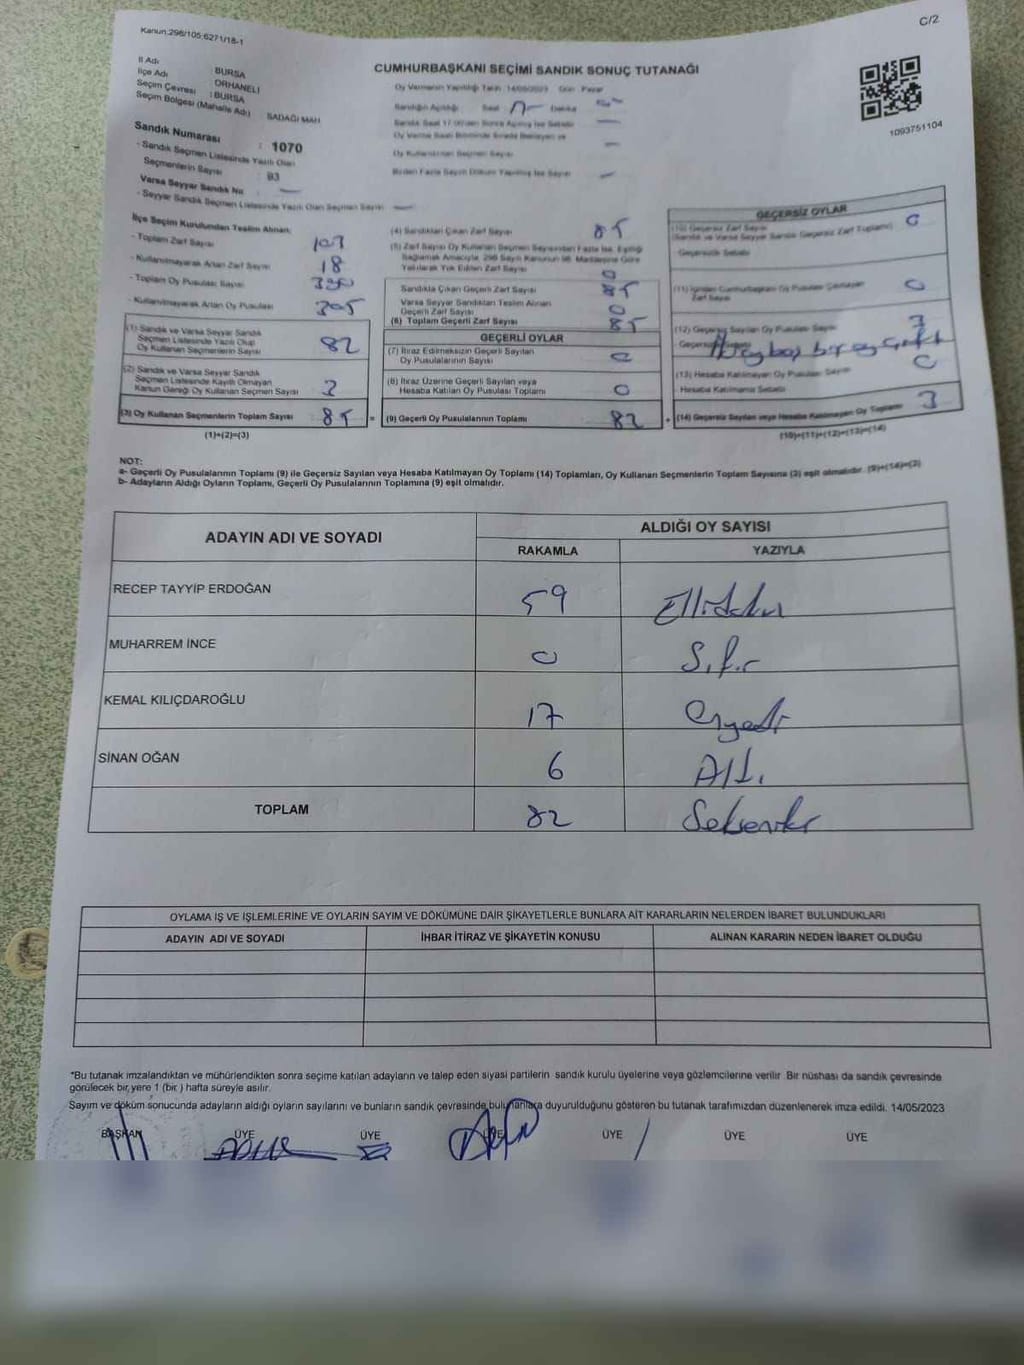 Kanun:298/105;6271/18-1
C/2
İl Adı : BURSA
İlçe Adı : ORHANELİ
Seçim Çevresi : BURSA
Seçim Bölgesi (Mahalle Adı) : SADAĞI MAH
Sandık Numarası : 1070
- Sandık Seçmen Listesinde Yazılı Olan
Seçmenlerin Sayısı : 93
Varsa Seyyar Sandık No
- Seyyar Sandık Seçmen Listesinde Yazılı Olan Seçmen Sayısı
CUMHURBAŞKANI SEÇİMİ SANDIK SONUÇ TUTANAĞI
Oy Vermenin Yapıldığı Tarih 14/05/2023 Gün Pazar
Sandığın Açıldığı Saat Dakika
1093751104
İlçe Seçim Kurulundan Teslim Alınan;
- Toplam Zarf Sayısı 107
- Kullanılmayarak Artan Zarf Sayısı 18
- Toplam Oy Pusulası Sayısı
- Kullanılmayarak Artan Oy Pusulası 305
(1) Sandık ve Varsa Seyyar Sandık
Seçmen Listesinde Yazılı Olup
Oy Kullanan Seçmenlerin Sayısı 82
(2) Sandık ve Varsa Seyyar Sandık
Seçmen Listesinde Kayıtlı Olmayan
Kanun Gereği Oy Kullanan Seçmen Sayısı 3
(3) Oy Kullanan Seçmenlerin Toplam Sayısı 85 =
(1)+(2)=(3)
(4) Sandıktan Çıkan Zarf Sayısı 85
(5) Zarf Sayısı Oy Kullanan Seçmen Sayısından Fazla İse, Eşitliği
Sağlamak Amacıyla, 298 Sayılı Kanunun 98. Maddesine Göre
Yakılarak Yok Edilen Zarf Sayısı 0
Sandıkta Çıkan Geçerli Zarf Sayısı 85
Varsa Seyyar Sandıktan Teslim Alınan
Geçerli Zarf Sayısı 0
(6) Toplam Geçerli Zarf Sayısı 85
GEÇERLİ OYLAR
(7) İtiraz Edilmeksizin Geçerli Sayılan
Oy Pusulalarının Sayısı 0
(8) İtiraz Üzerine Geçerli Sayılan veya
Hesaba Katılan Oy Pusulası Toplamı 0
(9) Geçerli Oy Pusulalarının Toplamı 82 +
GEÇERSİZ OYLAR
(10) Geçersiz Zarf Sayısı 0
(Sandık ve Varsa Seyyar Sandık Geçersiz Zarf Toplamı)
Geçersizlik Sebebi
(11) İçinden Cumhurbaşkanı Oy Pusulası Çıkmayan
Zarf Sayısı 0
(12) Geçersiz Sayılan Oy Pusulası Sayısı 3
(13) Hesaba Katılmayan Oy Pusulası Sayısı 0
Hesaba Katılmama Sebebi
(14) Geçersiz Sayılan veya Hesaba Katılmayan Oy Toplamı 3
(10)+(11)+(12)+(13)=(14)
NOT:
a- Geçerli Oy Pusulalarının Toplamı (9) ile Geçersiz Sayılan veya Hesaba Katılmayan Oy Toplamı (14) Toplamları, Oy Kullanan Seçmenlerin Toplam Sayısına (3) eşit olmalıdır. (9)+(14)=(3)
b- Adayların Aldığı Oyların Toplamı, Geçerli Oy Pusulalarının Toplamına (9) eşit olmalıdır.
ADAYIN ADI VE SOYADI
ALDIĞI OY SAYISI
RAKAMLA YAZIYLA
RECEP TAYYİP ERDOĞAN 59 Ellidokuz
MUHARREM İNCE 0 Sıfır
KEMAL KILIÇDAROĞLU 17 Onyedi
SİNAN OĞAN 6 Altı
TOPLAM 82 Sekseniki
OYLAMA İŞ VE İŞLEMLERİNE VE OYLARIN SAYIM VE DÖKÜMÜNE DAİR ŞİKAYETLERLE BUNLARA AİT KARARLARIN NELERDEN İBARET BULUNDUKLARI
ADAYIN ADI VE SOYADI İHBAR İTİRAZ VE ŞİKAYETİN KONUSU ALINAN KARARIN NEDEN İBARET OLDUĞU
"Bu tutanak imzalandıktan ve mühürlendikten sonra seçime katılan adayların ve talep eden siyasi partilerin sandık kurulu üyelerine veya gözlemcilerine verilir. Bir nüshası da sandık çevresinde
görülecek bir yere 1 (bir ) hafta süreyle asılır.
Sayım ve döküm sonucunda adayların aldığı oyların sayılarını ve bunların sandık çevresinde bulunanlara duyurulduğunu gösteren bu tutanak tarafımızdan düzenlenerek imza edildi. 14/05/2023
BAŞKAN ÜYE ÜYE ÜYE ÜYE ÜYE ÜYE